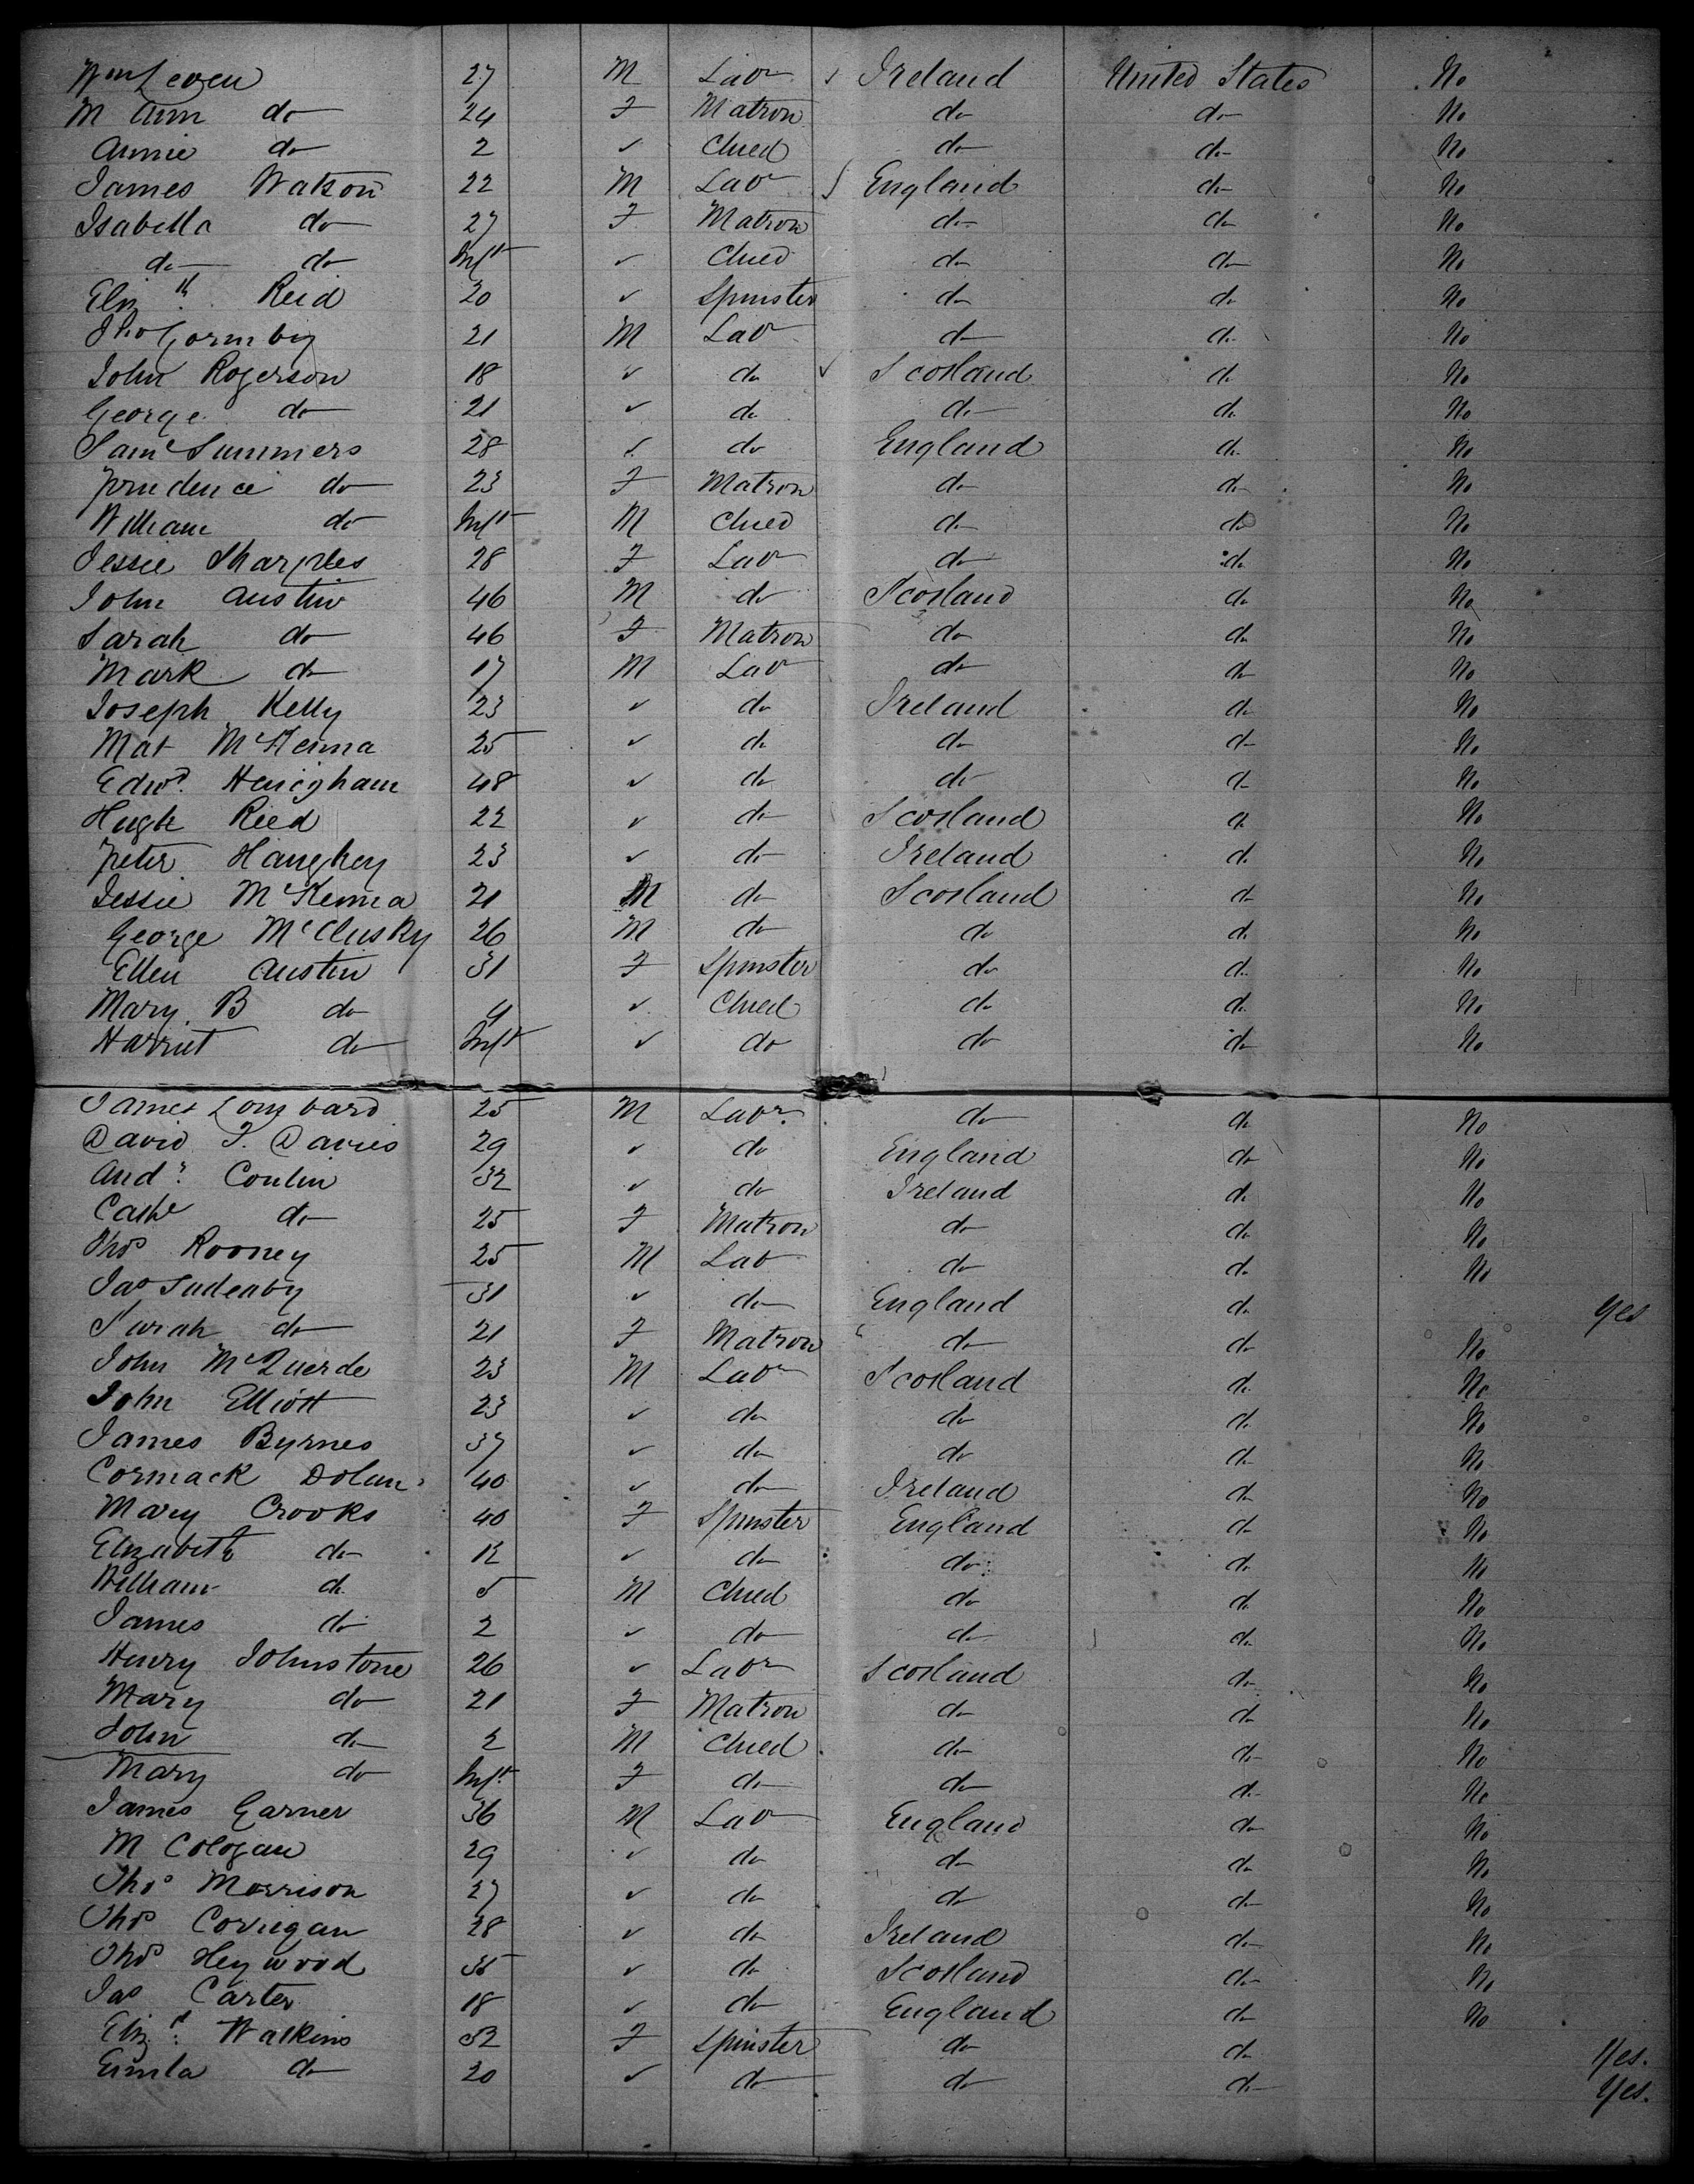 Wm Leven 27 M Labr Ireland United States No
M Ann do 24 F Matron do do No
Annie do 2 ✓ Child do do No
James Watson 22 M Labr England do No
Isabella do 27 F Matron do do No
do do Inft ✓ Child do do No
Elizth Reid 20 ✓ Spinster do do No
Thos Gormby 21 M Labr do do No
John Rogerson 18 ✓ do ✓ Scotland do No
George do 21 ✓ do do do No
Saml Summers 28 ✓ do England do No
Prudence do 23 F Matron do do No
William do Inft M Child do do No
Jessie Sharples 28 F Labr do do No
John Austin 46 M do Scotland do No
Sarah do 46 F Matron do do No
Mark do 17 M Labr do do No
Joseph Kelly 23 ✓ do Ireland do No
Mat McKenna 25 ✓ do do do No
Edwd Henigham 48 ✓ do do do No
Hugh Reed 22 ✓ do Scotland do No
Peter Haughey 23 ✓ do Ireland do No
Jessie McKenna 21 M do Scotland do No
George McClusky 26 M do do do No
Ellen Austin 31 F Spinster do do No
Mary B do 4 ✓ Child do do No
Harriet do Inft ✓ do do do No
James Lombard 25 M Labr do do No
David T. Davies 29 ✓ do England do No
Andr Conlin 32 ✓ do Ireland do No
Cathe do 25 F Matron do do No
Thos Rooney 25 M Labr do do No
Jas Sudeaby 31 ✓ do England do Yes
Sarah do 21 F Matron do do No
John McQuerde 23 M Labr Scotland do No
John Elliott 23 ✓ do do do No
James Byrnes 37 ✓ do do do No
Cormack Dolan 40 ✓ do Ireland do No
Mary Crooks 40 F Spinster England do No
Elizabeth do 12 ✓ do do do No
William do 5 M Child do do No
James do 2 ✓ do do do No
Henry Johnstone 26 ✓ Labr Scotland do No
Mary do 21 F Matron do do No
John do 2 M Child do do No
Mary do Inft F do do do No
James Garner 36 M Labr England do No
M Cologan 29 ✓ do do do No
Thos Morrison 27 ✓ do do do No
Thos Corrigan 28 ✓ do Ireland do No
Thos Heywood 35 ✓ do Scotland do No
Jas Carter 18 ✓ do England do No
Elizth Watkins 52 F Spinster do do Yes.
do 20 ✓ do do do Yes.